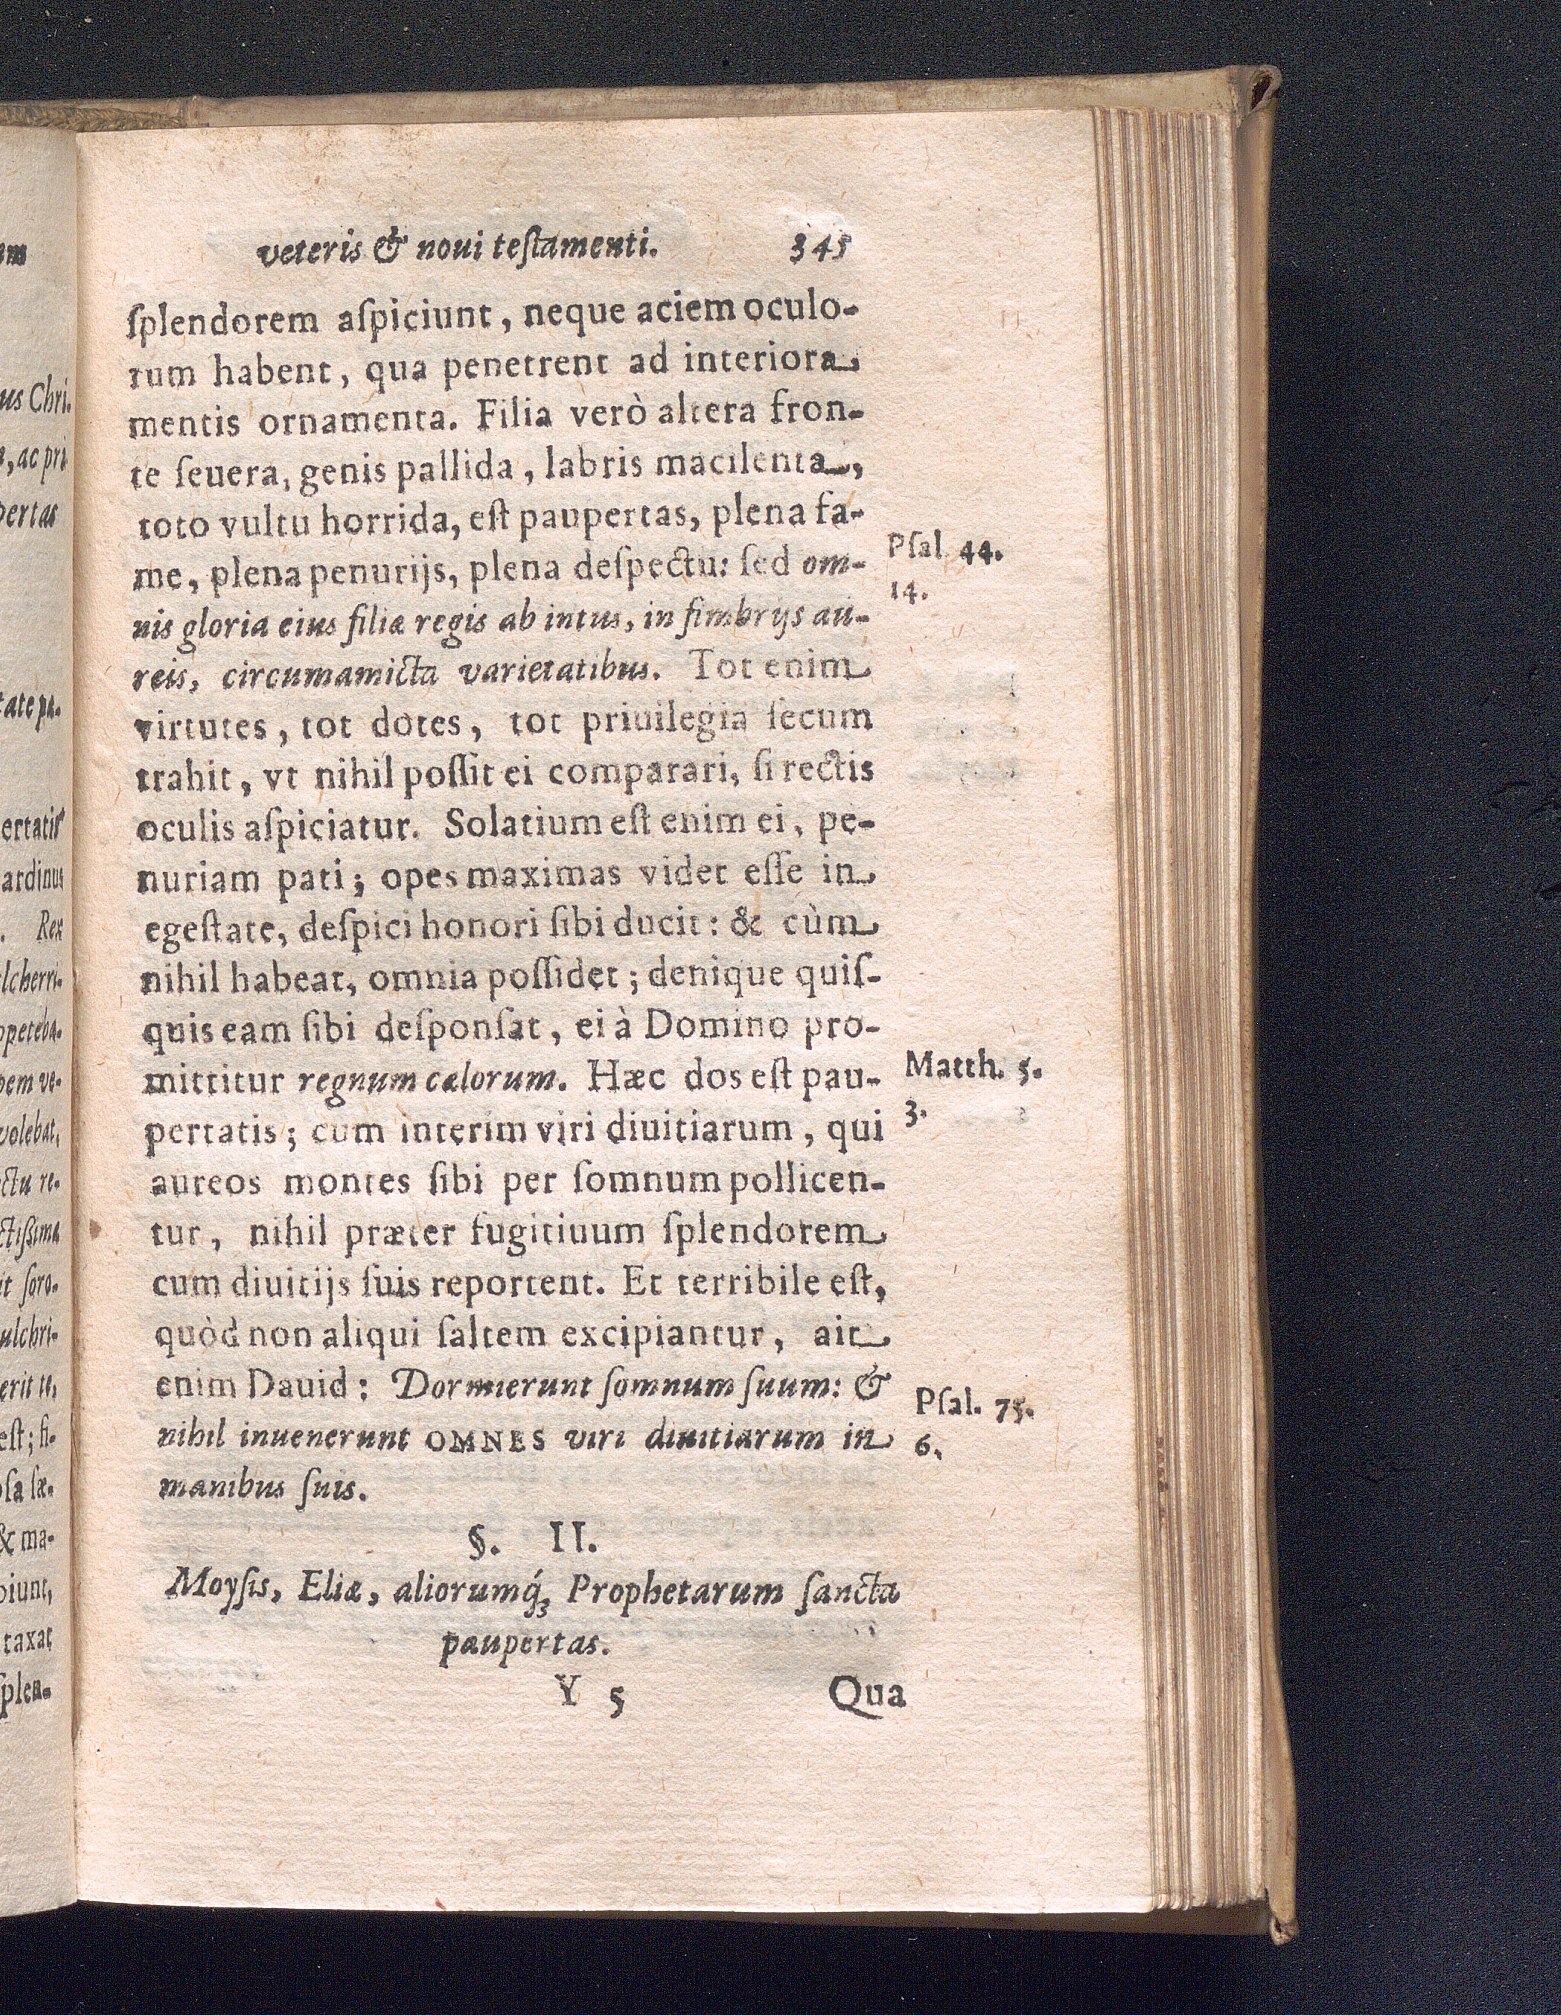 veteris & noui teſtamenti. 345
ſplendorem aſpiciunt, neque aciem oculo-
rum habent, qua penetrent ad interiora
mentis ornamenta. Filia verò altera fron-
te ſeuera, genis pallida, labris macilenta,
toto vultu horrida, eſt paupertas, plena fa-
me, plena penurijs, plena deſpectu: ſed om-
nis gloria eius filiæ regis ab intus, in fimbrijs au-
reis, circumamicta varietatibus. Tot enim
virtutes, tot dotes, tot priuilegia ſecum
trahit, vt nihil poſſit ei comparari, ſi rectis
oculis aſpiciatur. Solatium eſt enim ei, pe-
nuriam pati; opes maximas videt eſſe in
egeſtate, deſpici honori ſibi ducit: & cùm
nihil habeat, omnia poſſidet; denique quiſ-
quis eam ſibi deſponſat, ei à Domino pro-
mittitur regnum cælorum. Hæc dos eſt pau-
pertatis; cum interim viri diuitiarum, qui
aureos montes ſibi per ſomnum pollicen-
tur, nihil præter fugitiuum ſplendorem
cum diuitijs ſuis reportent. Et terribile eſt,
quòd non aliqui ſaltem excipiantur, ait
enim Dauid: Dormierunt ſomnum ſuum: &
nihil inuenerunt OMNES viri diuitiarum in
manibus ſuis.
§. II.
Moyſis, Eliæ, aliorumq́; Prophetarum ſancta
paupertas.
Y 5 Qua
Pſal. 44.
14.
Matth. 5.
3.
Pſal. 75.
6.
us Chri.
, ac pri
pertas
tate pa.
ertatis
ardinus
. Rex
lcherri-
peteba-
pem ve-
volebat,
ctu re-
ctiſsima
it ſoro-
ulchri-
erit te,
eſt; ſi-
oſa ſæ-
& ma-
piunt,
taxat
ſplen-